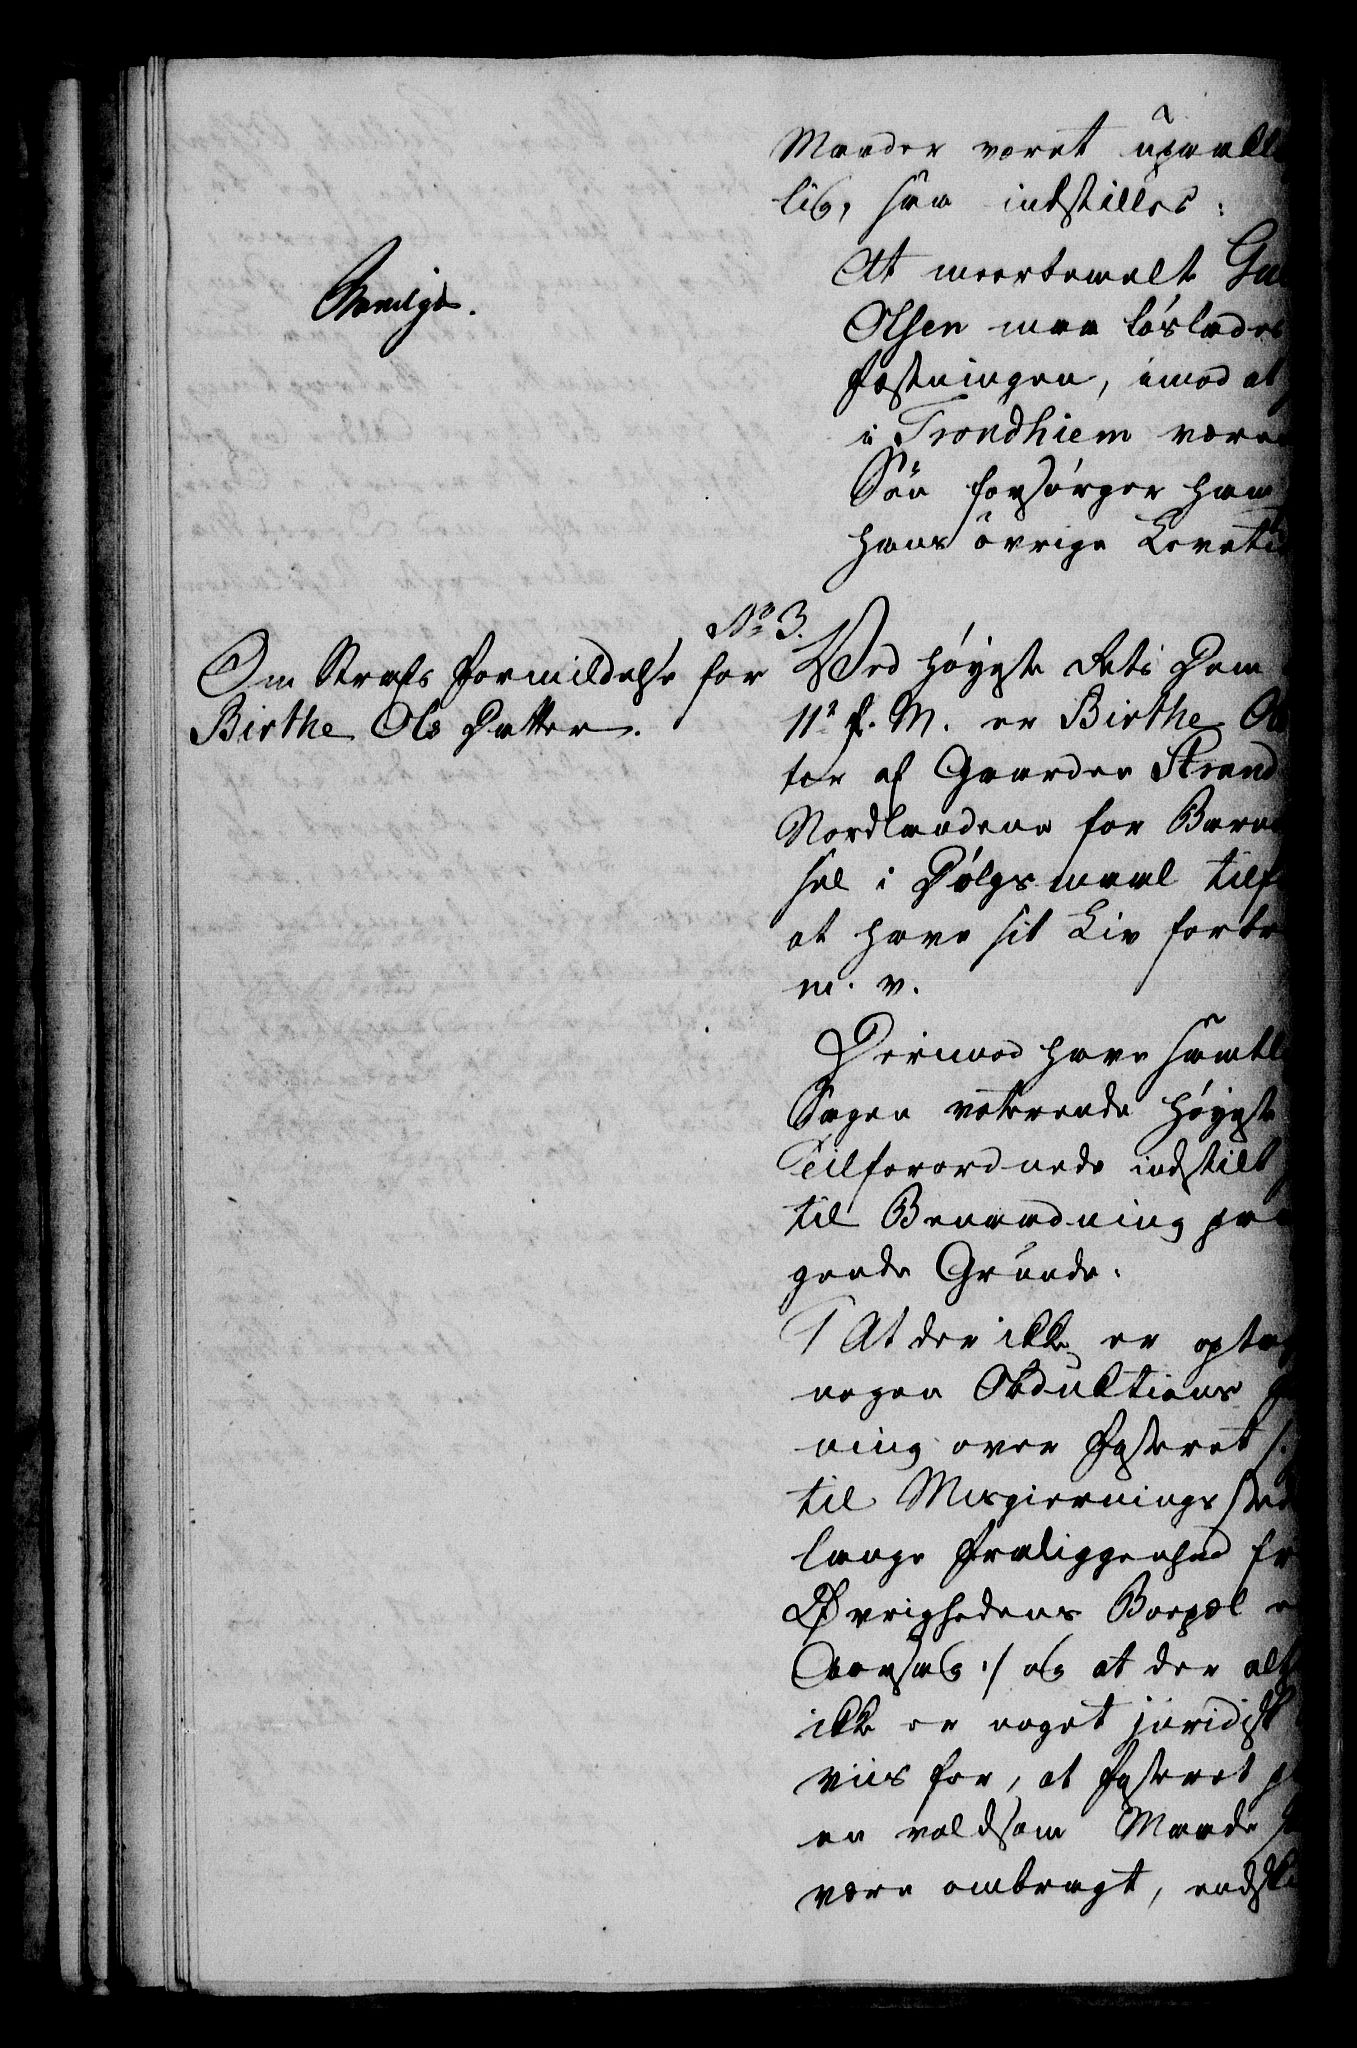 Maader været upaakl
lig, saa indstilles:
At meerbemelte
Olsen maa løslades
Fæstningen, imod at
i Trondhiem være
Søn forsørger ham
hans øvrige Levetii
Bevilges.
No 3.
Om Strafs Formildelse for
Birthe Ols Datter.
Ved Høyeste Rets Dom
11te f. M. er Birthe Ol
ter af Gaarden Strand
Nordlandene for Barne
sel i Dølgsmaal tilf
at have sit Liv forbr
m. v.
Derimod have samtl
Sagen voterende Høyeste
Tilforordnede indstilt
til Benaadning paa
gende Grunde.
1 At der ikke er optag
nogen Obduktions
ning over Fosteret
til Misgiernings sted
lange Fraliggenhed fr
Øvrighedens Boepæl
Aarsag :/ og at der alt
ikke er noget juridisk
viis for, at Fosteret p
en voldsom Maade
være ombragt, endski